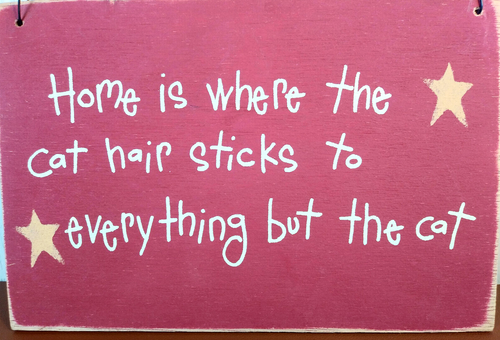 Home is where the
cat hair sticks to
everything but the cat